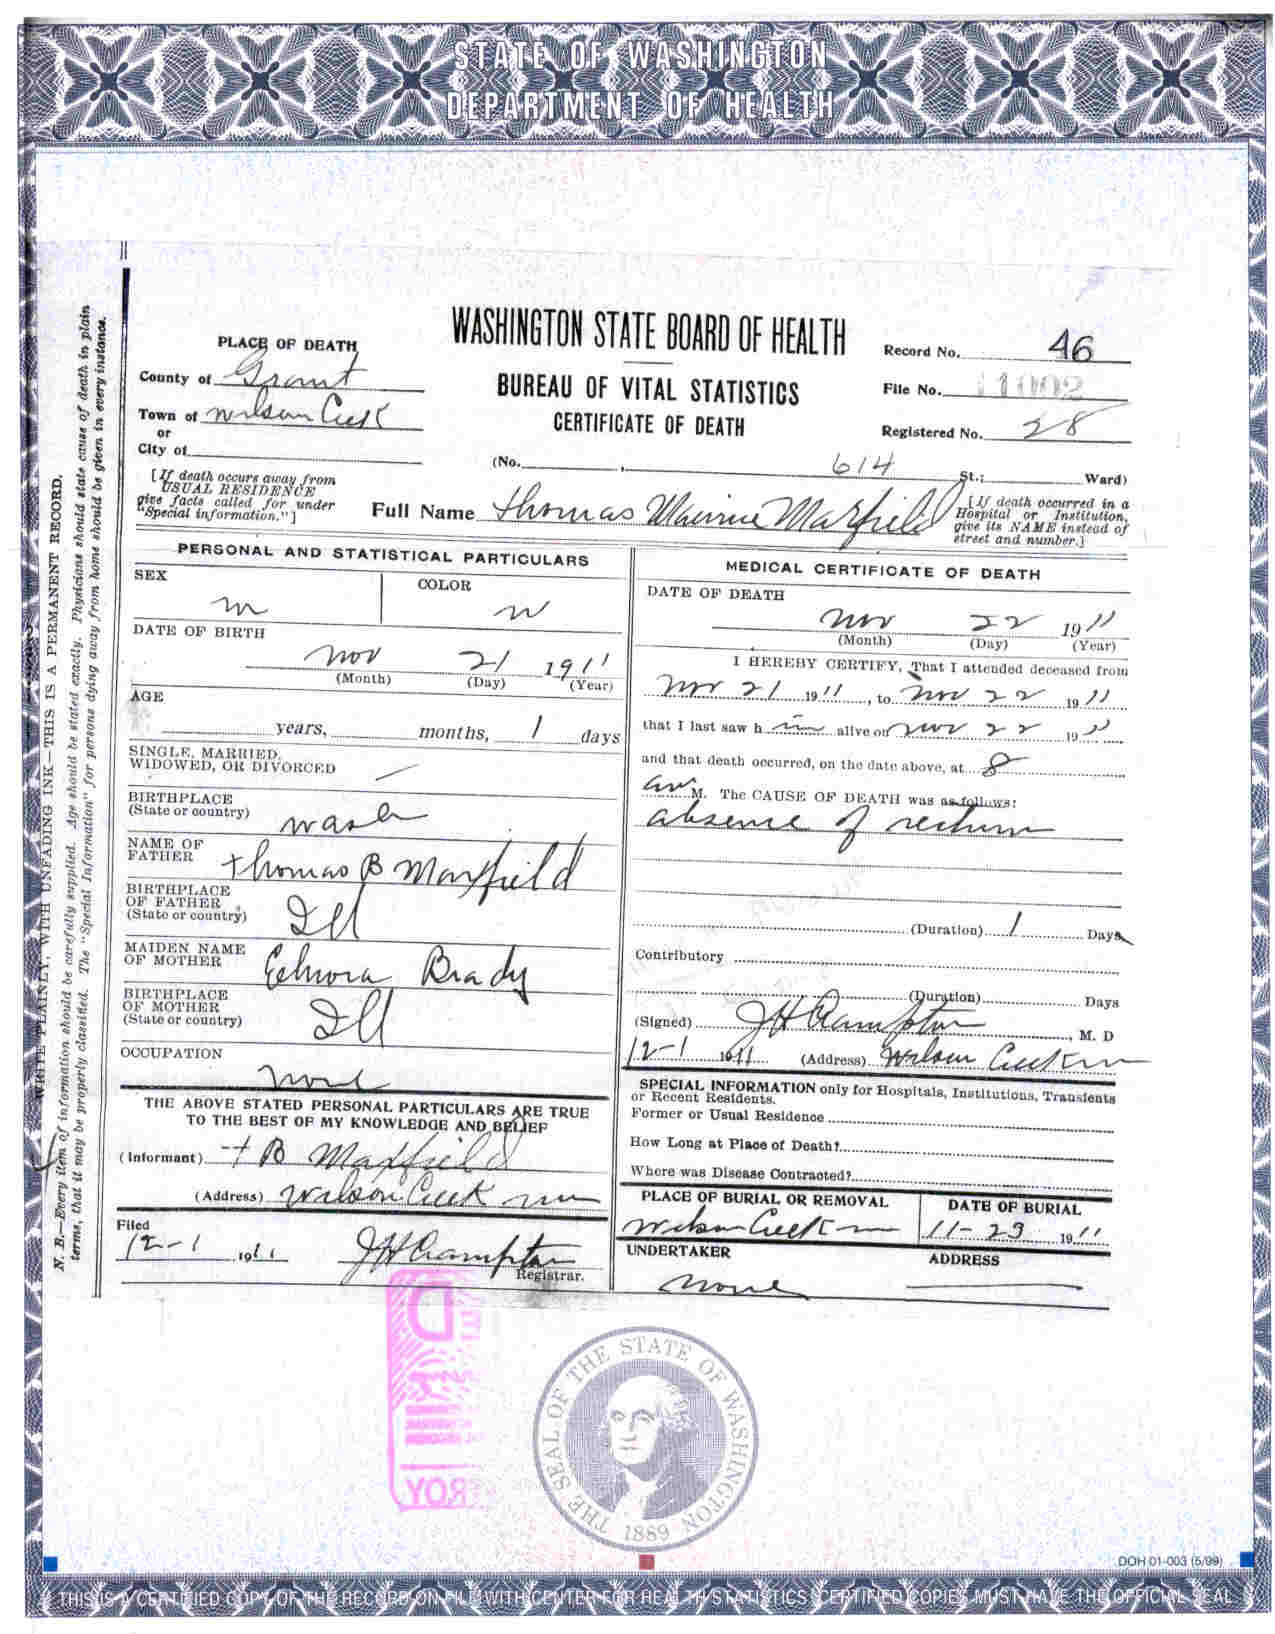 STATE OF WASHINGTON
DEPARTMENT OF HEALTH
WASHINGTON STATE BOARD OF HEALTH
BUREAU OF VITAL STATISTICS
CERTIFICATE OF DEATH
Record No. 46
File No. 11002
Registered No. 28
PLACE OF DEATH
County of Grant
Town of Wilson Creek
or
City of
(No. , 614 St.; Ward)
[If death occurs away from
USUAL RESIDENCE
give facts called for under
"Special information."]
Full Name Thomas Maxfield
[If death occurred in a
Hospital or Institution,
give its NAME instead of
street and number.]
WRITE PLAINLY, WITH UNFADING INK—THIS IS A PERMANENT RECORD.
N. B.—Every item of information should be carefully supplied. Age should be stated exactly. Physicians should state cause of death in plain
terms, that it may be properly classified. The "Special Information" for persons dying away from home should be given in every instance.
PERSONAL AND STATISTICAL PARTICULARS
SEX
m
COLOR
w
DATE OF BIRTH
Nov 21 1911
(Month) (Day) (Year)
AGE
years, months, 1 days
SINGLE, MARRIED,
WIDOWED, OR DIVORCED
BIRTHPLACE
(State or country) Wash
NAME OF
FATHER Thomas B Maxfield
BIRTHPLACE
OF FATHER
(State or country) Ill
MAIDEN NAME
OF MOTHER Brady
BIRTHPLACE
OF MOTHER
(State or country) Ill
OCCUPATION
none
THE ABOVE STATED PERSONAL PARTICULARS ARE TRUE
TO THE BEST OF MY KNOWLEDGE AND BELIEF
(Informant) T B Maxfield
(Address) Wilson Creek Wn
Filed
12-1 1911 JH Crampton
Registrar.
MEDICAL CERTIFICATE OF DEATH
DATE OF DEATH
Nov 22 1911
(Month) (Day) (Year)
I HEREBY CERTIFY, That I attended deceased from
Nov 21 1911, to Nov 22 1911
that I last saw him alive on Nov 22 1911
and that death occurred, on the date above, at 8
am M. The CAUSE OF DEATH was as follows:
absence of rectum
(Duration) 1 Days
Contributory
(Duration) Days
(Signed) JH Crampton, M. D
12-1 1911 (Address) Wilson Creek Wn
SPECIAL INFORMATION only for Hospitals, Institutions, Transients
or Recent Residents.
Former or Usual Residence
How Long at Place of Death?
Where was Disease Contracted?
PLACE OF BURIAL OR REMOVAL
Wilson Creek Wn
DATE OF BURIAL
11-23 1911
UNDERTAKER
none
ADDRESS
THE SEAL OF THE STATE OF WASHINGTON
1889
DOH 01-003 (5/99)
THIS IS A CERTIFIED COPY OF THE RECORD ON FILE WITH CENTER FOR HEALTH STATISTICS CERTIFIED COPIES MUST HAVE THE OFFICIAL SEAL